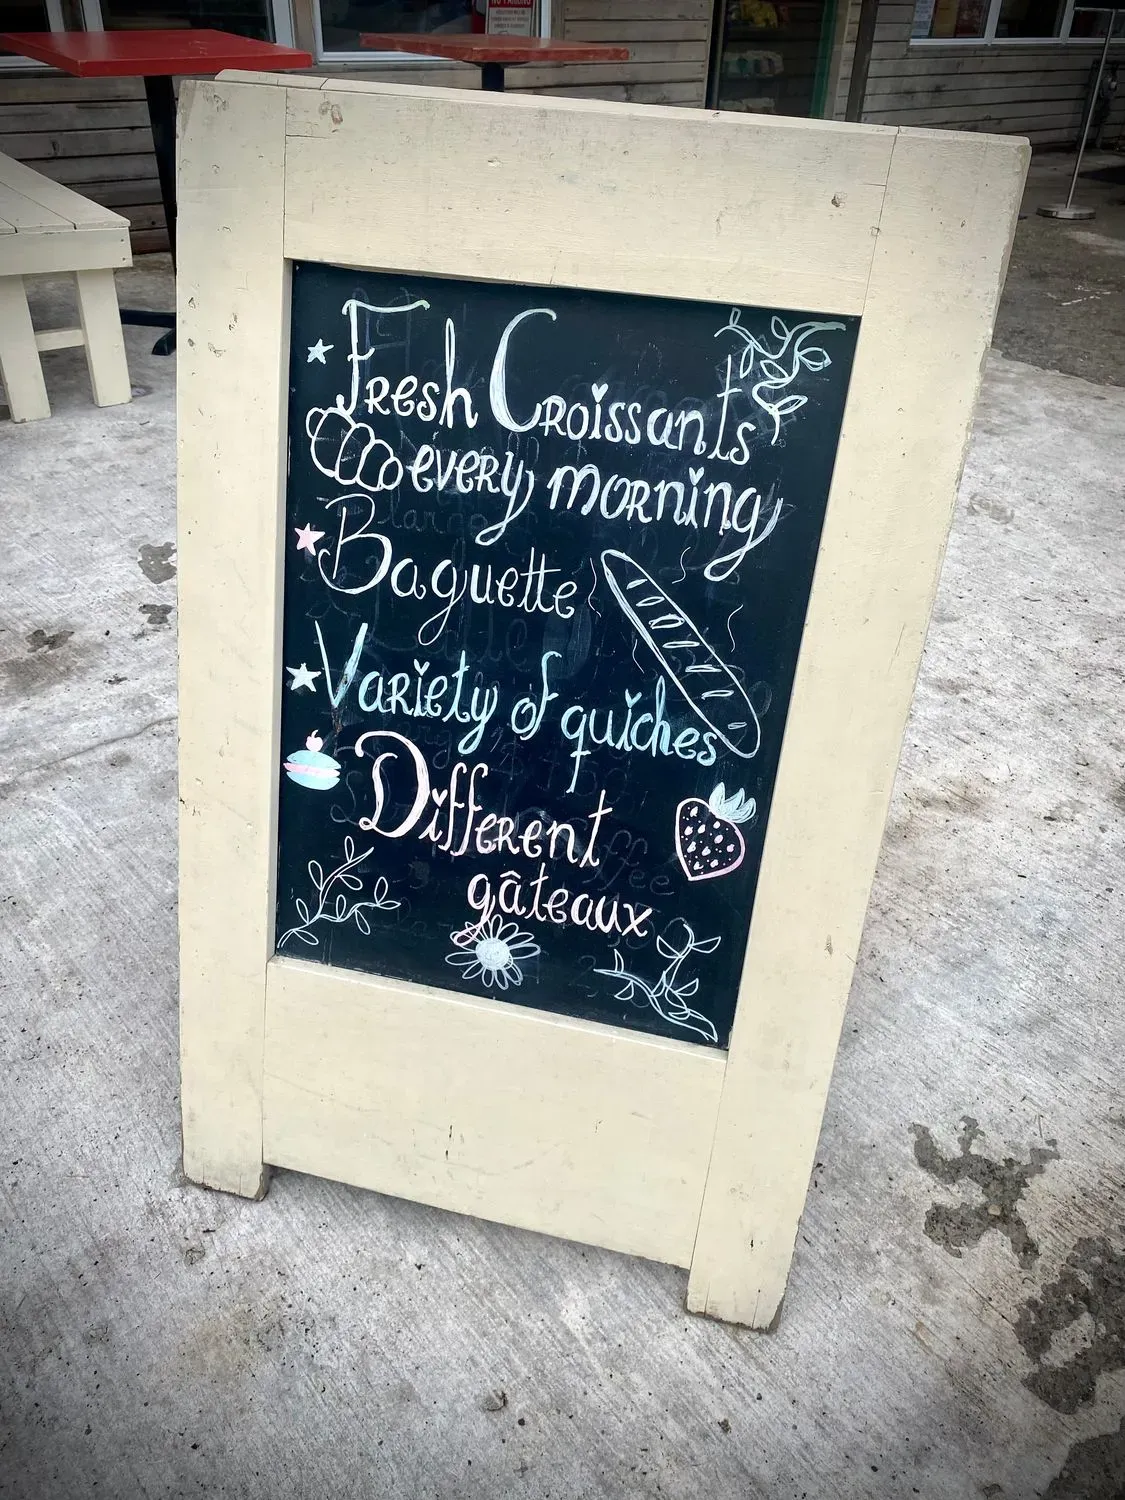 NO PARKING
Fresh Croissants
every morning
Baguette
Variety of quiches
Different
gâteaux